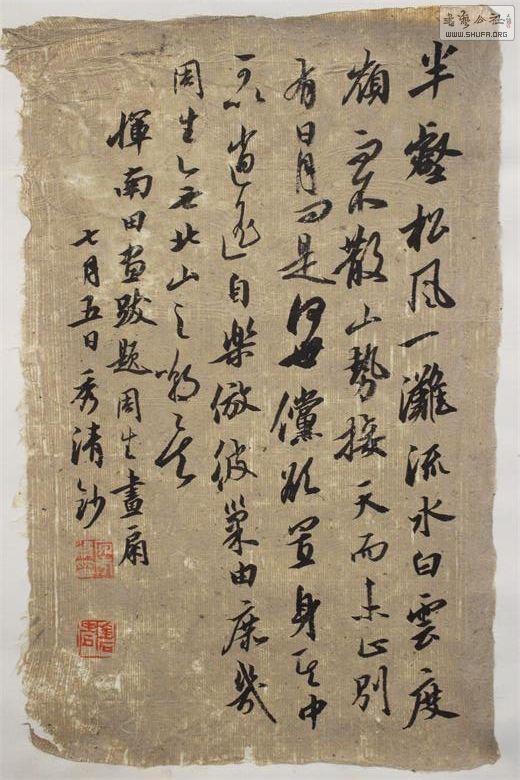 半壑松風一灘流水白雲度
嶺而不散山勢接天而未止別
有日月問是何世儻欲置身其中
可以逍遙自樂倣彼巢由庶幾
周生無北山之嘲矣
惲南田畫跋題周生畫扇
七月五日秀清鈔
書藝公社
WWW.SHUFA.ORG